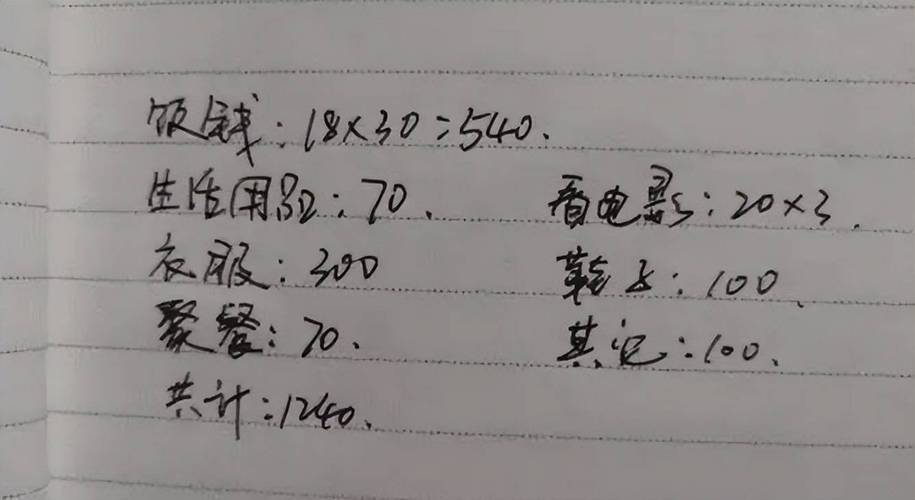 饭钱：18×30=540.
生活用品：70. 看电影：20×3.
衣服：300 鞋子：100.
聚餐：70. 其它：100.
共计：1240.